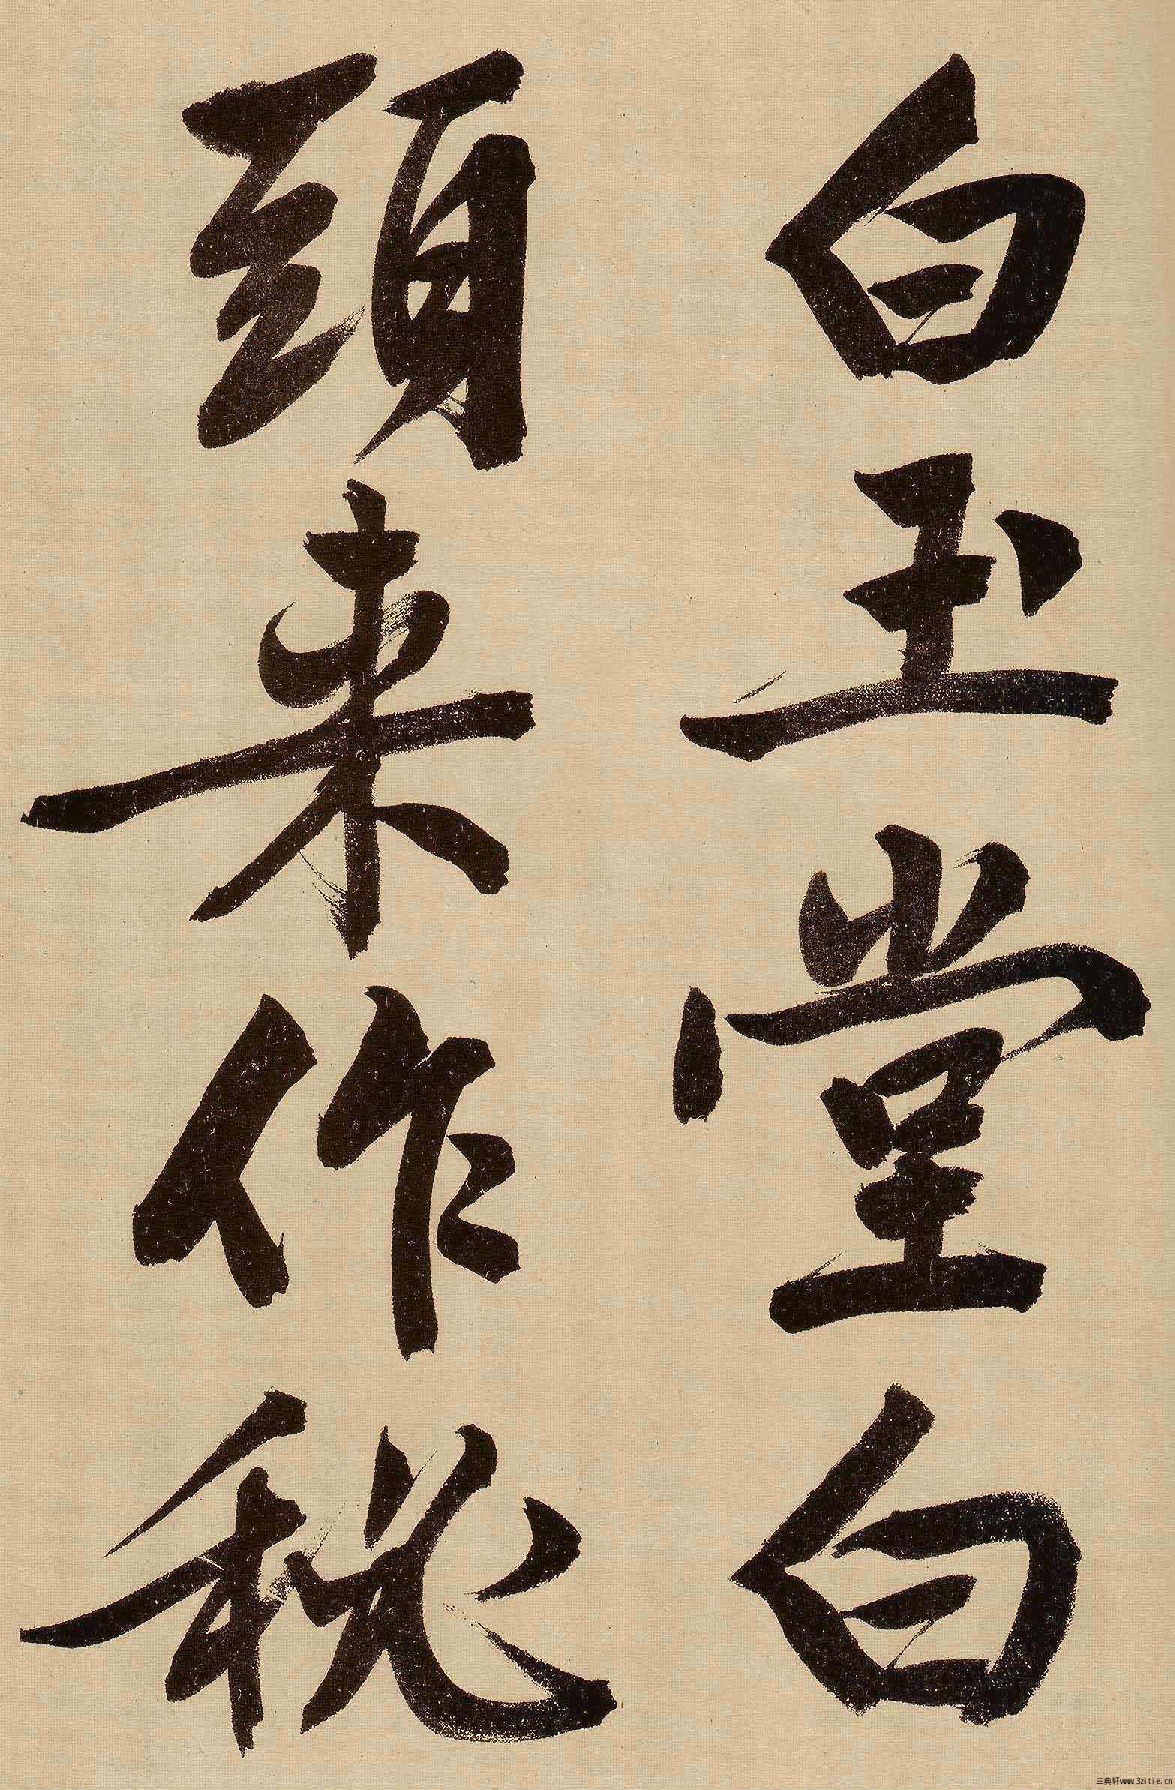 白玉堂白
頭来作秘
三典轩www.3ztie.cn